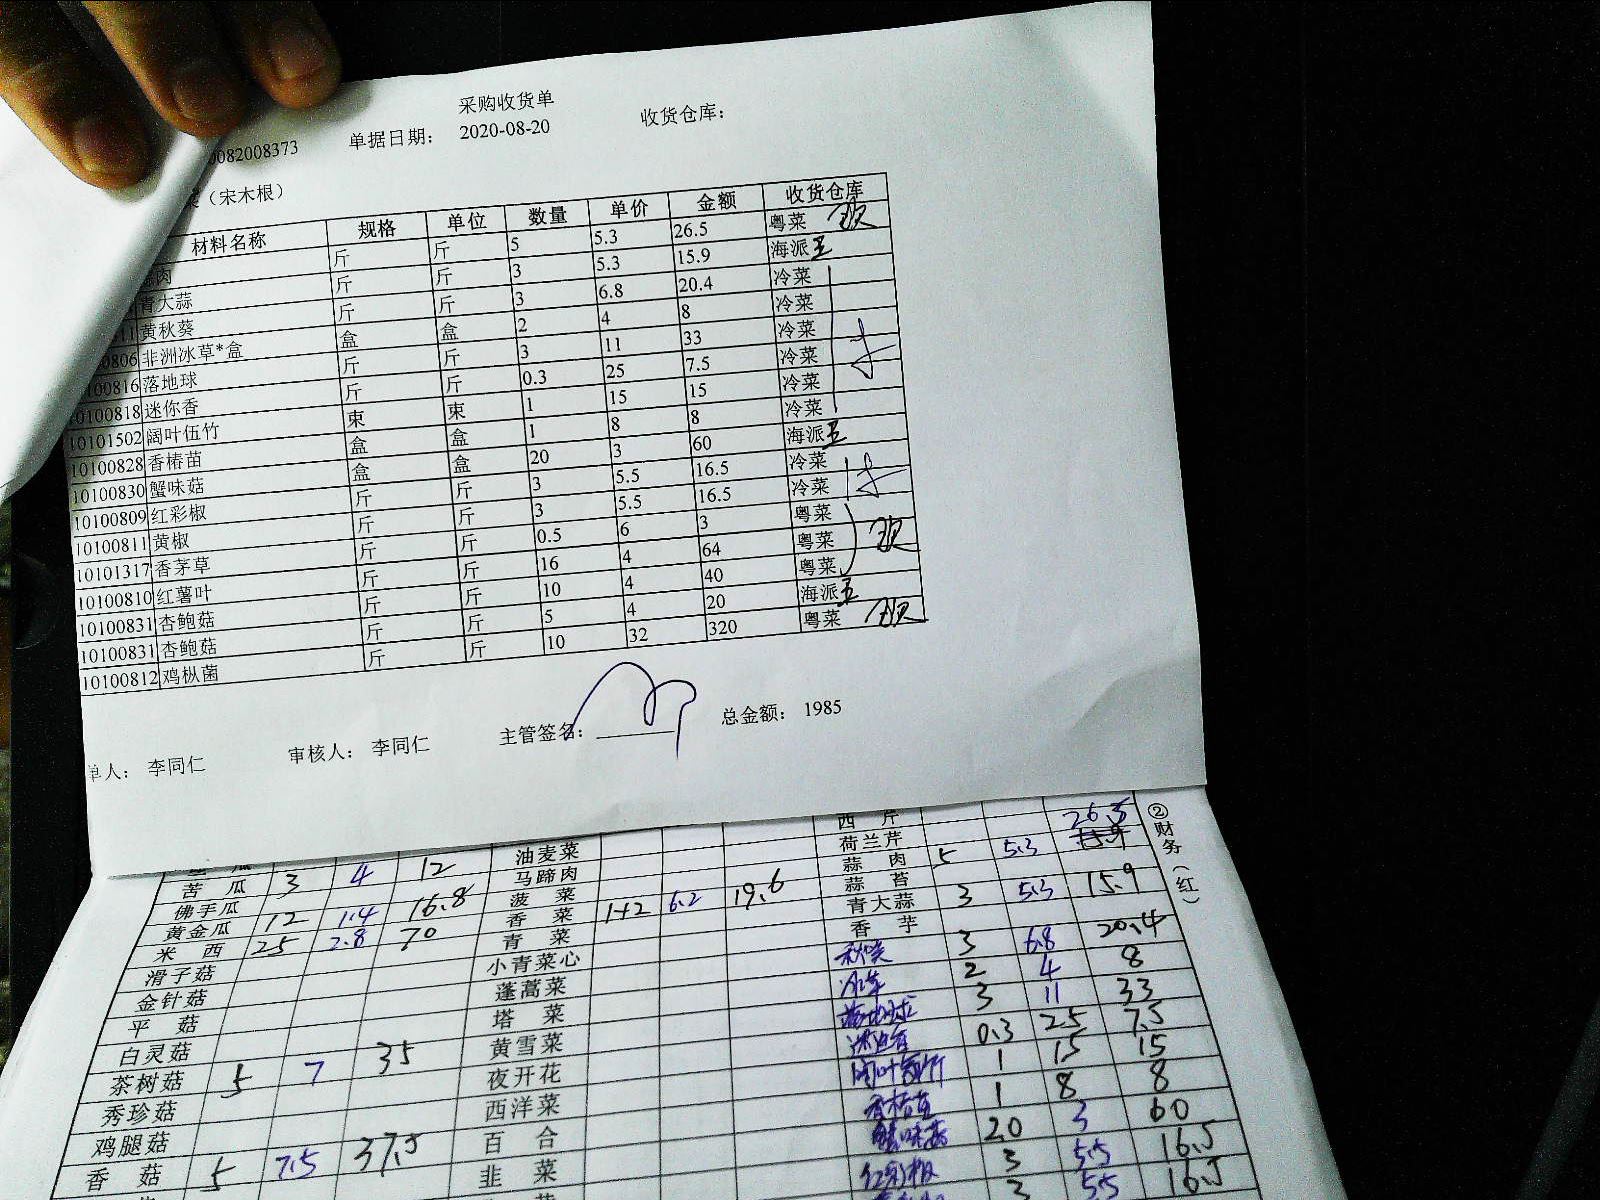 采购收货单
0082008373 单据日期： 2020-08-20 收货仓库：
（宋木根）
材料名称 规格 单位 数量 单价 金额 收货仓库
肉 斤 斤 5 5.3 26.5 粤菜
青大蒜 斤 斤 3 5.3 15.9 海派 王
11 黄秋葵 斤 斤 3 6.8 20.4 冷菜
0806 非洲冰草*盒 盒 盒 2 4 8 冷菜
100816 落地球 斤 斤 3 11 33 冷菜
0100818 迷你香 斤 斤 0.3 25 7.5 冷菜
10101502 阔叶伍竹 束 束 1 15 15 冷菜
10100828 香椿苗 盒 盒 1 8 8 冷菜
10100830 蟹味菇 盒 盒 20 3 60 海派 王
10100809 红彩椒 斤 斤 3 5.5 16.5 冷菜
10100811 黄椒 斤 斤 3 5.5 16.5 冷菜
10101317 香茅草 斤 斤 0.5 6 3 粤菜
10100810 红薯叶 斤 斤 16 4 64 粤菜
10100831 杏鲍菇 斤 斤 10 4 40 粤菜
10100831 杏鲍菇 斤 斤 5 4 20 海派 王
10100812 鸡枞菌 斤 斤 10 32 320 粤菜
单人： 李同仁 审核人： 李同仁 主管签名： 总金额： 1985
②财务（红）
西芹 26.5
油麦菜 荷兰芹
苦瓜 3 4 12 马蹄肉 蒜肉 5 5.3
佛手瓜 菠菜 蒜苔
黄金瓜 12 1.4 16.8 香菜 1+2 6.2 19.6 青大蒜 3 5.3 15.9
米西 25 2.8 70 青菜 香芋
滑子菇 小青菜心 秋葵 3 6.8 20.4
金针菇 蓬蒿菜 冰草 2 4 8
平菇 塔菜 落地球 3 11 33
白灵菇 黄雪菜 迷迭香 0.3 25 7.5
茶树菇 5 7 35 夜开花 1 15 15
秀珍菇 西洋菜 香椿苗 1 8 8
鸡腿菇 百合 蟹味菇 20 3 60
香菇 5 7.5 37.5 韭菜 红彩椒 3 5.5 16.5
3 5.5 16.5